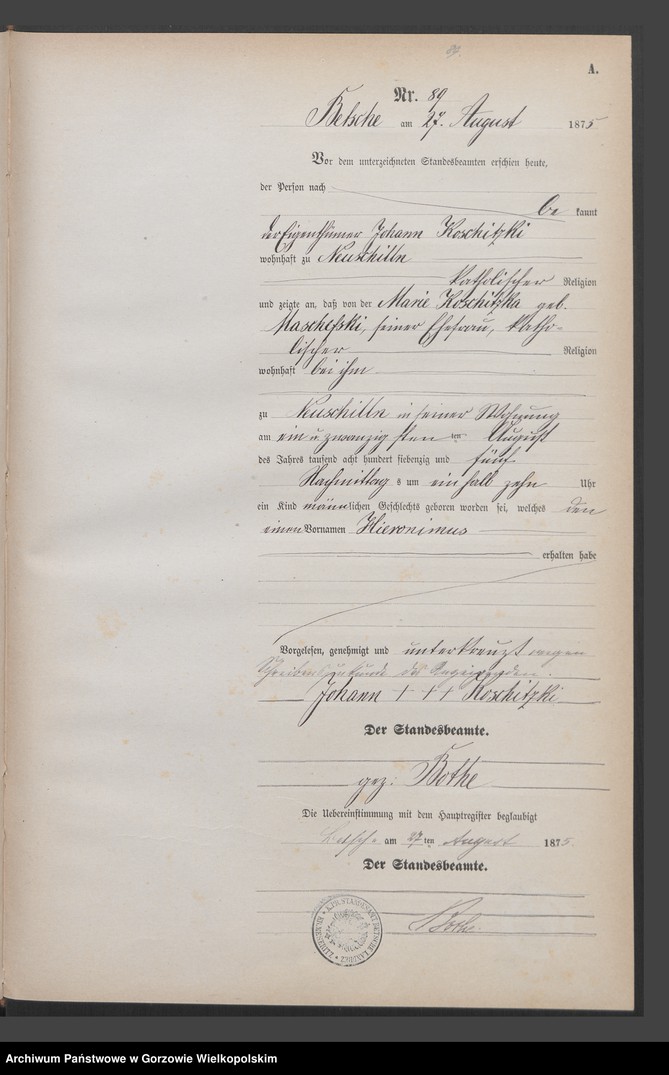 A.
Nr. 89
Betsche am 27. August 1875
Vor dem unterzeichneten Standesbeamten erschien heute,
der Person nach
be kannt
der Eigenthümer Johann Koschitzki
wohnhaft zu Neuschilln
katholischer Religion
und zeigte an, daß von der Marie Koschitzka geb.
Maschefski, seiner Ehefrau, katho-
lischer Religion
wohnhaft bei ihm
zu Neuschilln in seiner Wohnung
am ein u. zwanzig sten ten August
des Jahres tausend acht hundert siebenzig und fünf
Nachmittag s um ein halb zehn Uhr
ein Kind männlichen Geschlechts geboren worden sei, welches den
einen Vornamen Hieronimus
erhalten habe
Vorgelesen, genehmigt und unterkreuzt wegen
Schreibensunkunde des Anzeigenden.
Johann + + + Koschitzki
Der Standesbeamte.
gez: Bothe
Die Uebereinstimmung mit dem Hauptregister beglaubigt
Betsche am 27 ten August 1875
Der Standesbeamte.
Bothe.
Archiwum Państwowe w Gorzowie Wielkopolskim